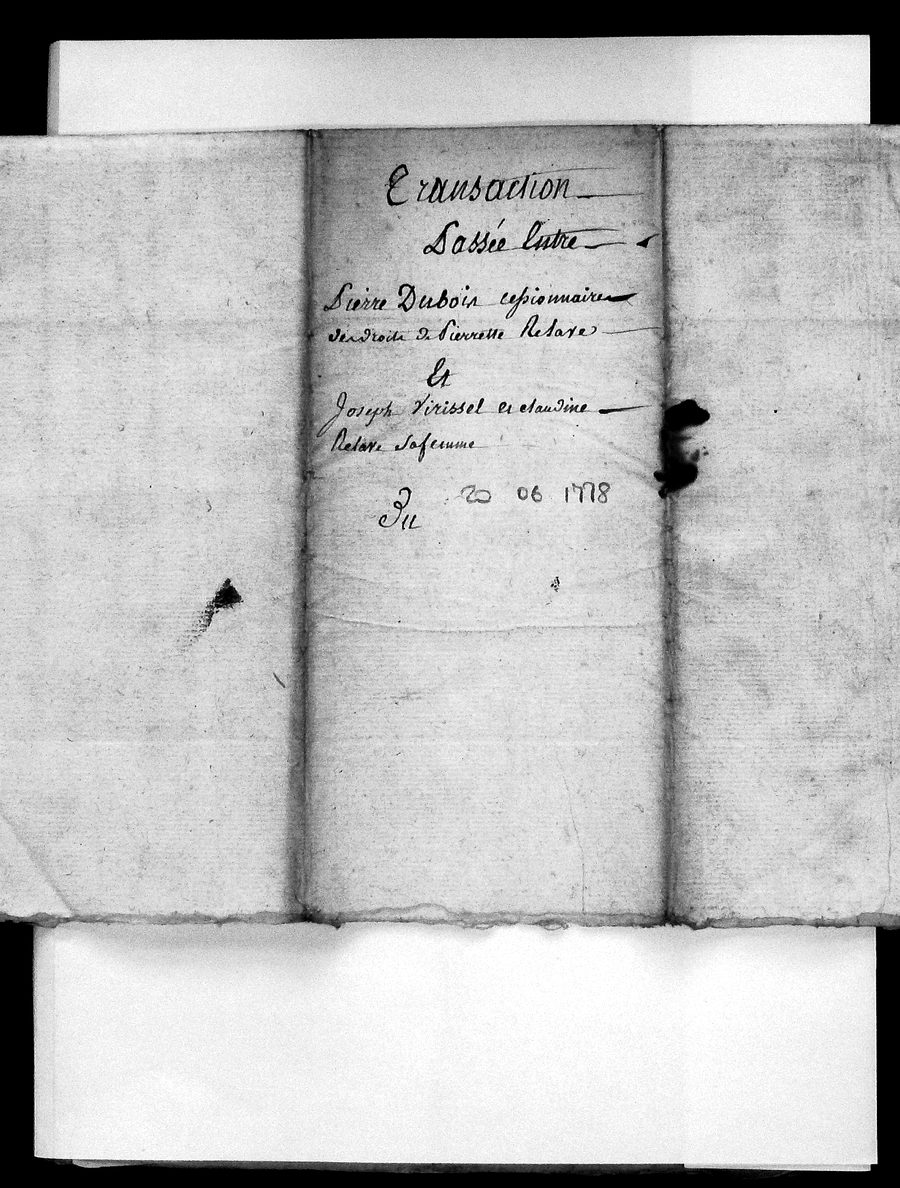 Transaction
Passée Entre
Pierre Dubois cessionnaire
des droits de Pierrette Relave
Et
Joseph Virissel et claudine
Relave sa femme
Du 20 06 1778